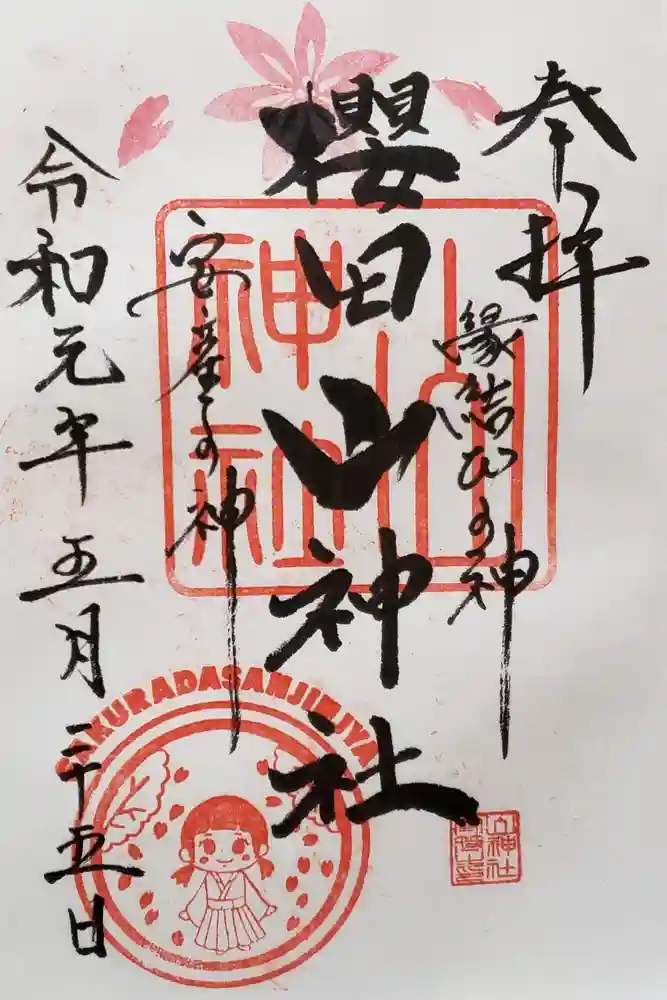 奉拝
縁結びの神
櫻田山神社
安産の神
令和元年五月二十五日
山神社
SAKURADASANJINJYA